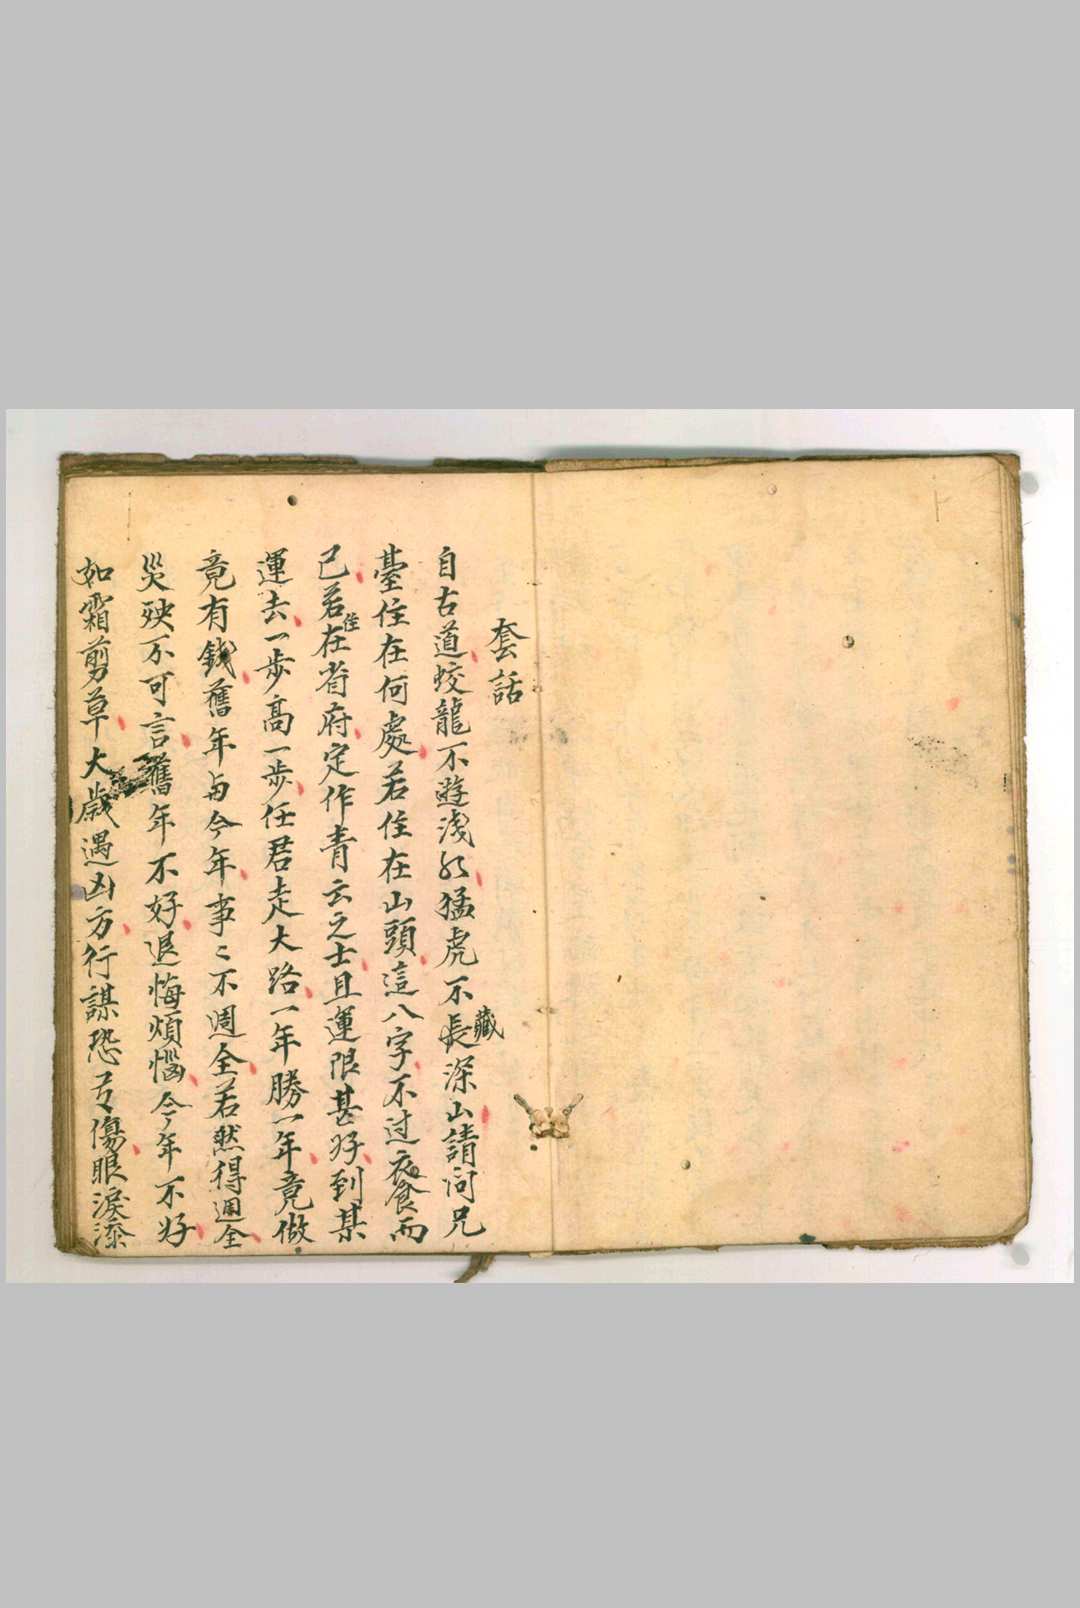 套話
自古道蛟龍不遊淺水猛虎不長藏深山請问兄
臺住在何處若住在山頭這八字不过衣食而
己若住在省府定作青云之士且運限甚好到某
運去一步高一步任君走大路一年勝一年竟做
竟有錢舊年与今年事〻不週全若然得週全
災殃不可言舊年不好退悔煩惱今年不好
如霜剪草大歲遇凶方行謀恐 傷眼淚添